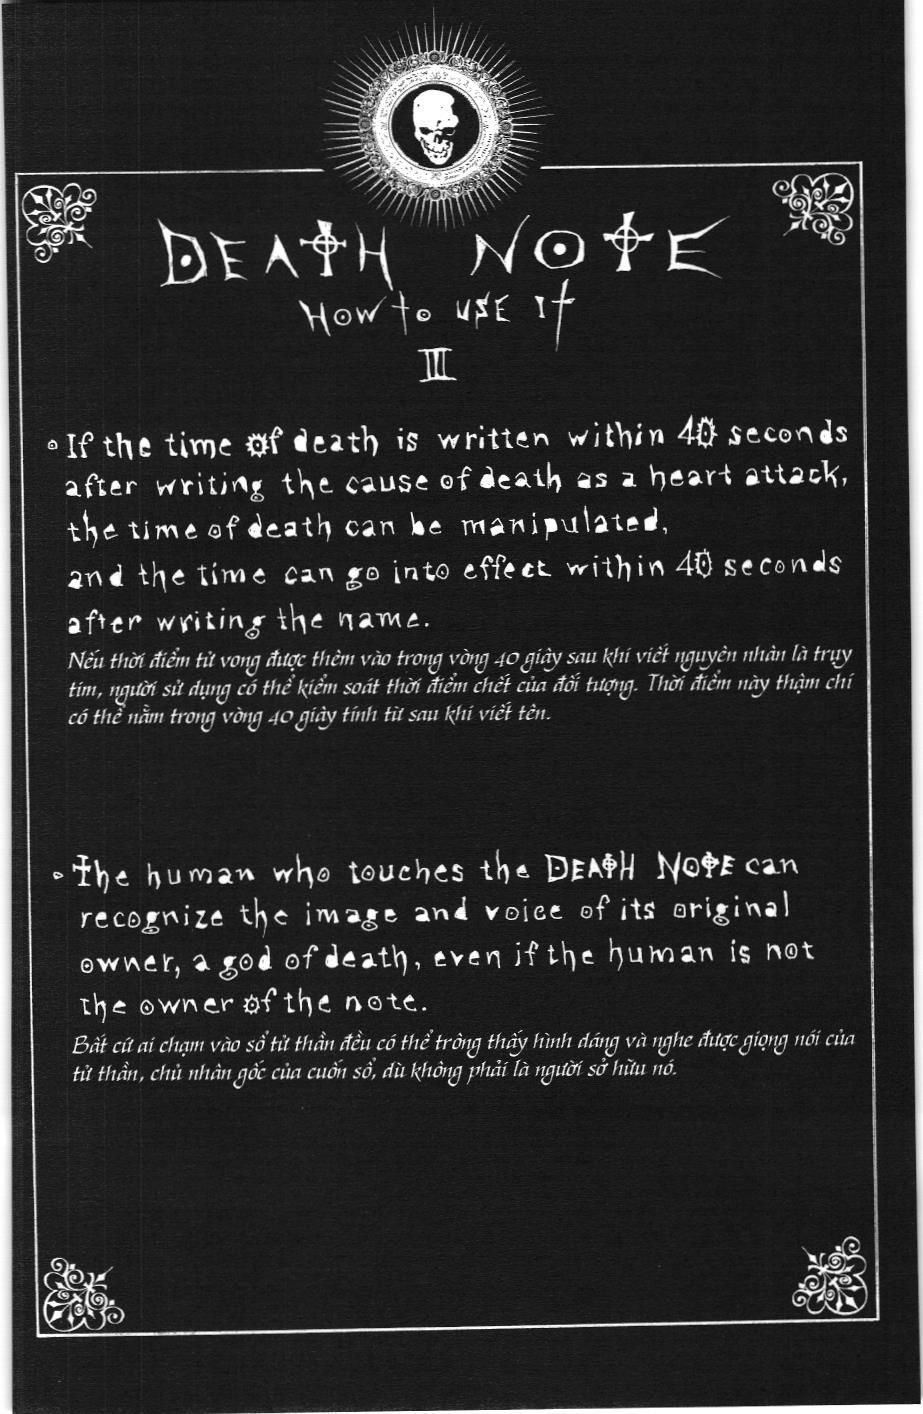 DEATH NOTE
How to use it
III
If the time of death is written within 40 seconds
after writing the cause of death as a heart attack,
the time of death can be manipulated,
and the time can go into effect within 40 seconds
after writing the name.
Nếu thời điểm tử vong được thêm vào trong vòng 40 giây sau khi viết nguyên nhân là trụy
tim, người sử dụng có thể kiểm soát thời điểm chết của đối tượng. Thời điểm này thậm chí
có thể nằm trong vòng 40 giây tính từ sau khi viết tên.
The human who touches the DEATH NOTE can
recognize the image and voice of its original
owner, a god of death, even if the human is not
the owner of the note.
Bất cứ ai chạm vào sổ tử thần đều có thể trông thấy hình dáng và nghe được giọng nói của
tử thần, chủ nhân gốc của cuốn sổ, dù không phải là người sở hữu nó.